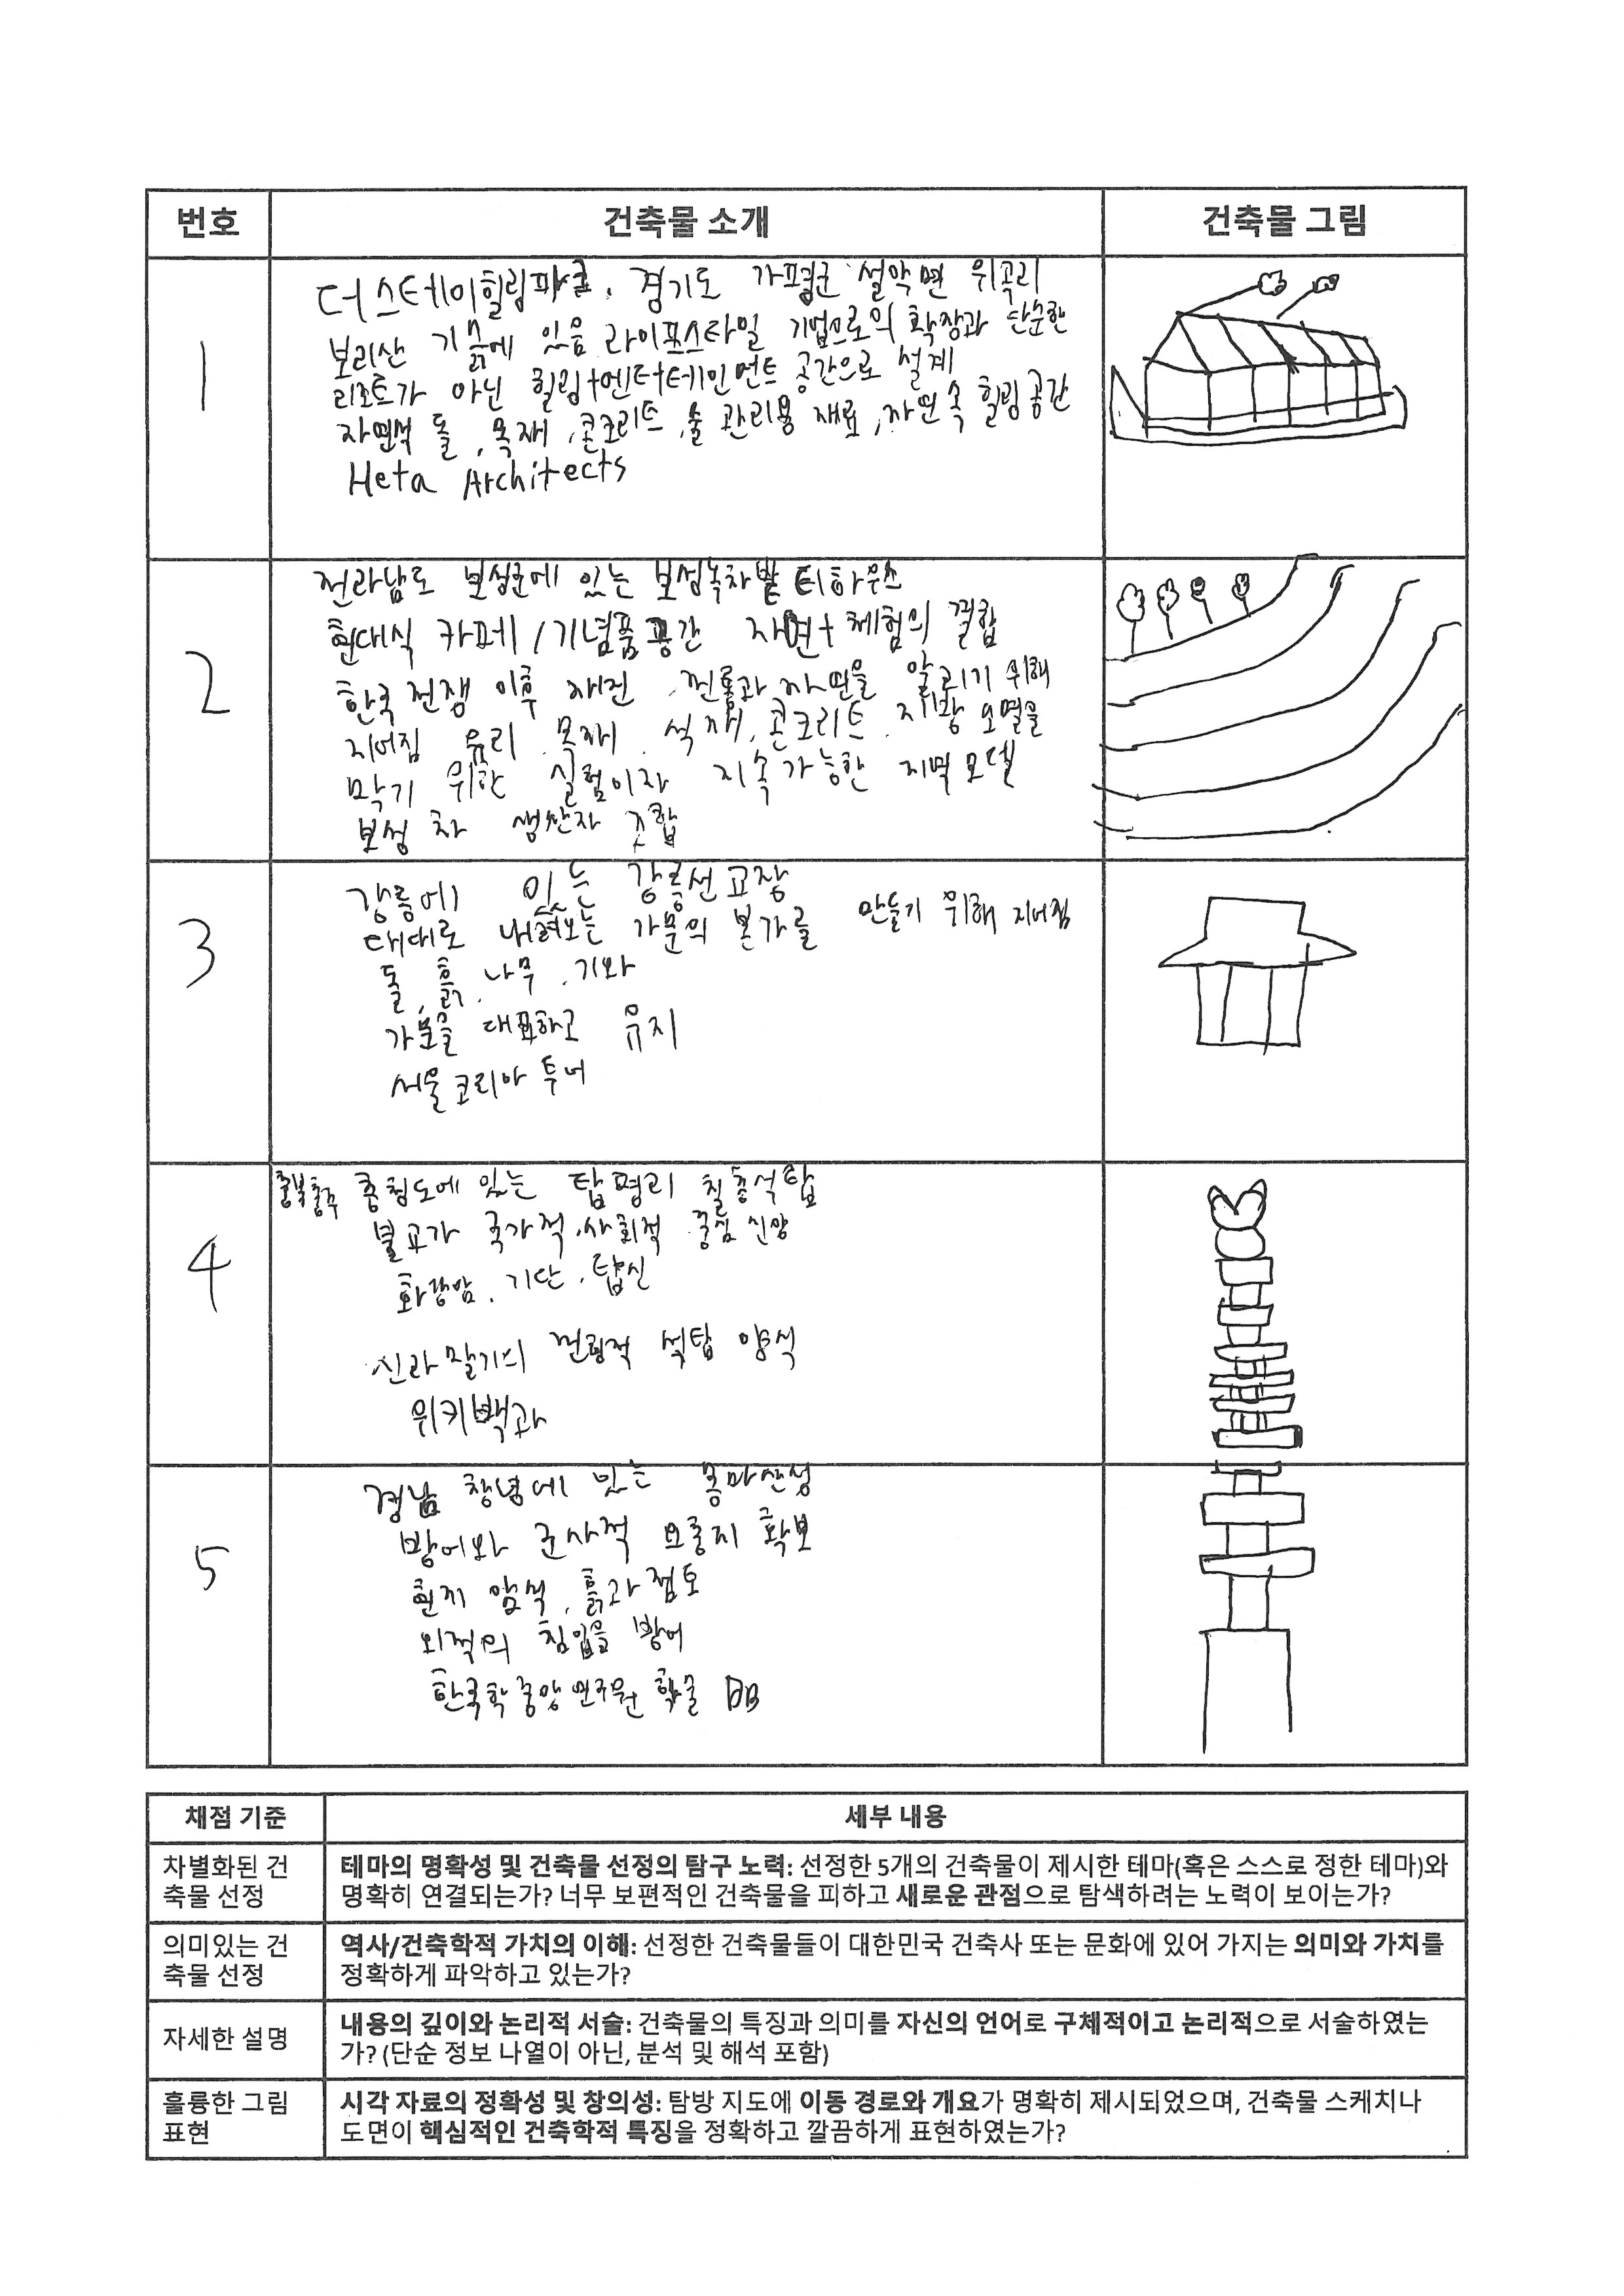 번호 건축물 소개 건축물 그림
1
더스테이힐링파크. 경기도 가평군 설악면 위곡리
보리산 기슭에 있음 라이프스타일 기업으로의 확장과 단순한
리조트가 아닌 힐링+엔터테인먼트 공간으로 설계
자연석 돌, 목재, 콘크리트, 숲 관리용 재료, 자연 속 힐링공간
Heta Architects
2
전라남도 보성군에 있는 보성녹차밭 티하우스
현대식 카페/기념품공간 자연+체험의 결합
한국전쟁 이후 재건, 전통과 자연을 알리기 위해
지어짐 유리, 목재, 석재, 콘크리트. 지방 소멸을
막기 위한 실험이자 지속가능한 지역모델
보성 차 생산자 조합
3
강릉에 있는 강릉선교장
대대로 내려오는 가문의 본가를 만들기 위해 지어짐
돌, 흙, 나무, 기와
가문을 대표하고 유지
서울코리아투어
4
충북충주 충청도에 있는 탑평리 칠층석탑
불교가 국가적.사회적 중심 신앙
화강암, 기단, 탑신
신라말기의 전형적 석탑 양식
위키백과
5
경남 창녕에 있는 목마산성
방어와 군사적 요충지 확보
현지 암석, 흙과 점토
외적의 침입을 방어
한국학중앙연구원 향글 DB
채점 기준 세부 내용
차별화된 건
축물 선정
테마의 명확성 및 건축물 선정의 탐구 노력: 선정한 5개의 건축물이 제시한 테마(혹은 스스로 정한 테마)와
명확히 연결되는가? 너무 보편적인 건축물을 피하고 새로운 관점으로 탐색하려는 노력이 보이는가?
의미있는 건
축물 선정
역사/건축학적 가치의 이해: 선정한 건축물들이 대한민국 건축사 또는 문화에 있어 가지는 의미와 가치를
정확하게 파악하고 있는가?
자세한 설명
내용의 깊이와 논리적 서술: 건축물의 특징과 의미를 자신의 언어로 구체적이고 논리적으로 서술하였는
가? (단순 정보 나열이 아닌, 분석 및 해석 포함)
훌륭한 그림
표현
시각 자료의 정확성 및 창의성: 탐방 지도에 이동 경로와 개요가 명확히 제시되었으며, 건축물 스케치나
도면이 핵심적인 건축학적 특징을 정확하고 깔끔하게 표현하였는가?